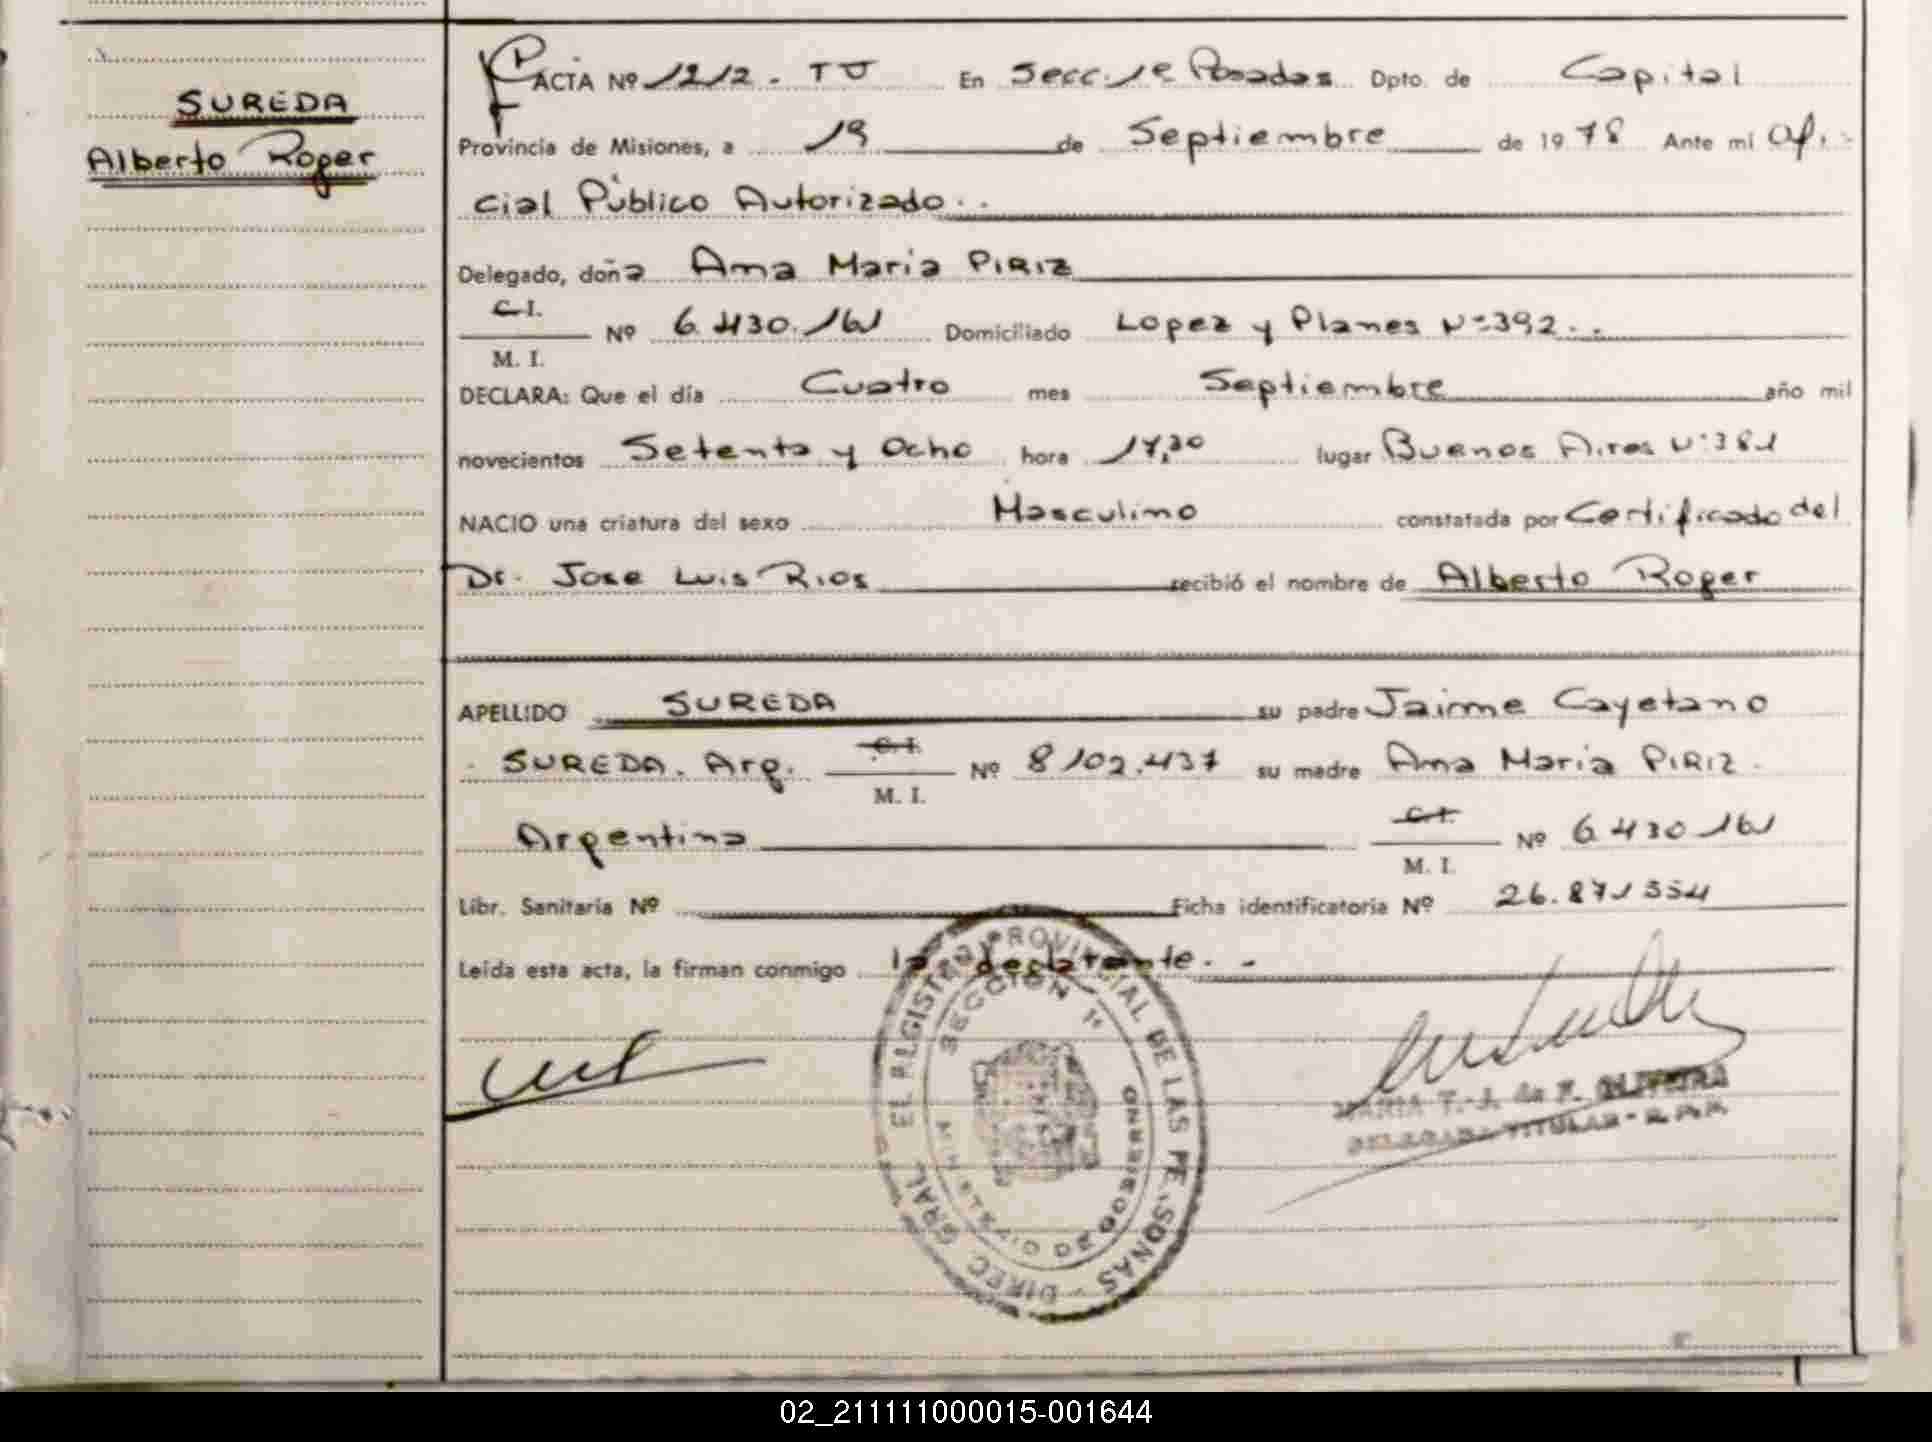 SUREDA
Alberto Roger
ACTA Nº 1212 - TU En Secc. 1e Posadas Dpto. de Capital
Provincia de Misiones, a 19 de Septiembre de 1978 Ante mi Ofi-
cial Público Autorizado. -
Delegado, doña Ana Maria PIRIZ
C.I.
M. I. Nº 6.430.161 Domiciliado Lopez y Planes Nº 392. -
DECLARA: Que el día Cuatro mes Septiembre año mil
novecientos Setenta y Ocho hora 17,30 lugar Buenos Aires Nº 381
NACIO una criatura del sexo Masculino constatada por Certificado del
Dr. Jose Luis Rios recibió el nombre de Alberto Roger
APELLIDO SUREDA su padre Jaime Cayetano
SUREDA. Arg. C.I. M. I. Nº 8.102.437 su madre Ana Maria PIRIZ.
Argentina C.I. M. I. Nº 6.430.161
Libr. Sanitaria Nº Ficha identificatoria Nº 26.871.354
Leída esta acta, la firman conmigo la declarante. -
DIREC. GRAL. EL REGISTRO PROVINCIAL DE LAS PERSONAS -
SECCION 1ª
MINISTERIO DE GOBIERNO
MARIA T. J. de F. OLIVEIRA
DELEGADA TITULAR - R.P.P.
02_211111000015-001644